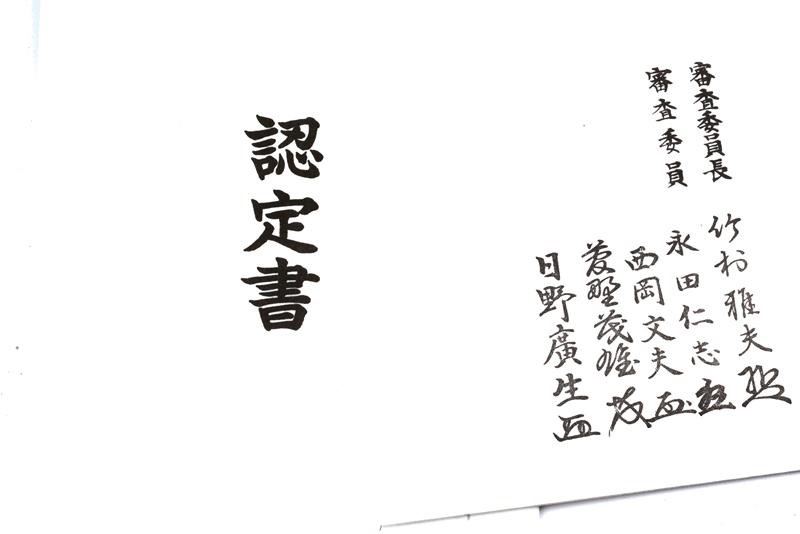 審査委員長
竹村雅夫
審査委員
永田仁志
西岡文夫
菱野茂雄
日野廣生
認定書